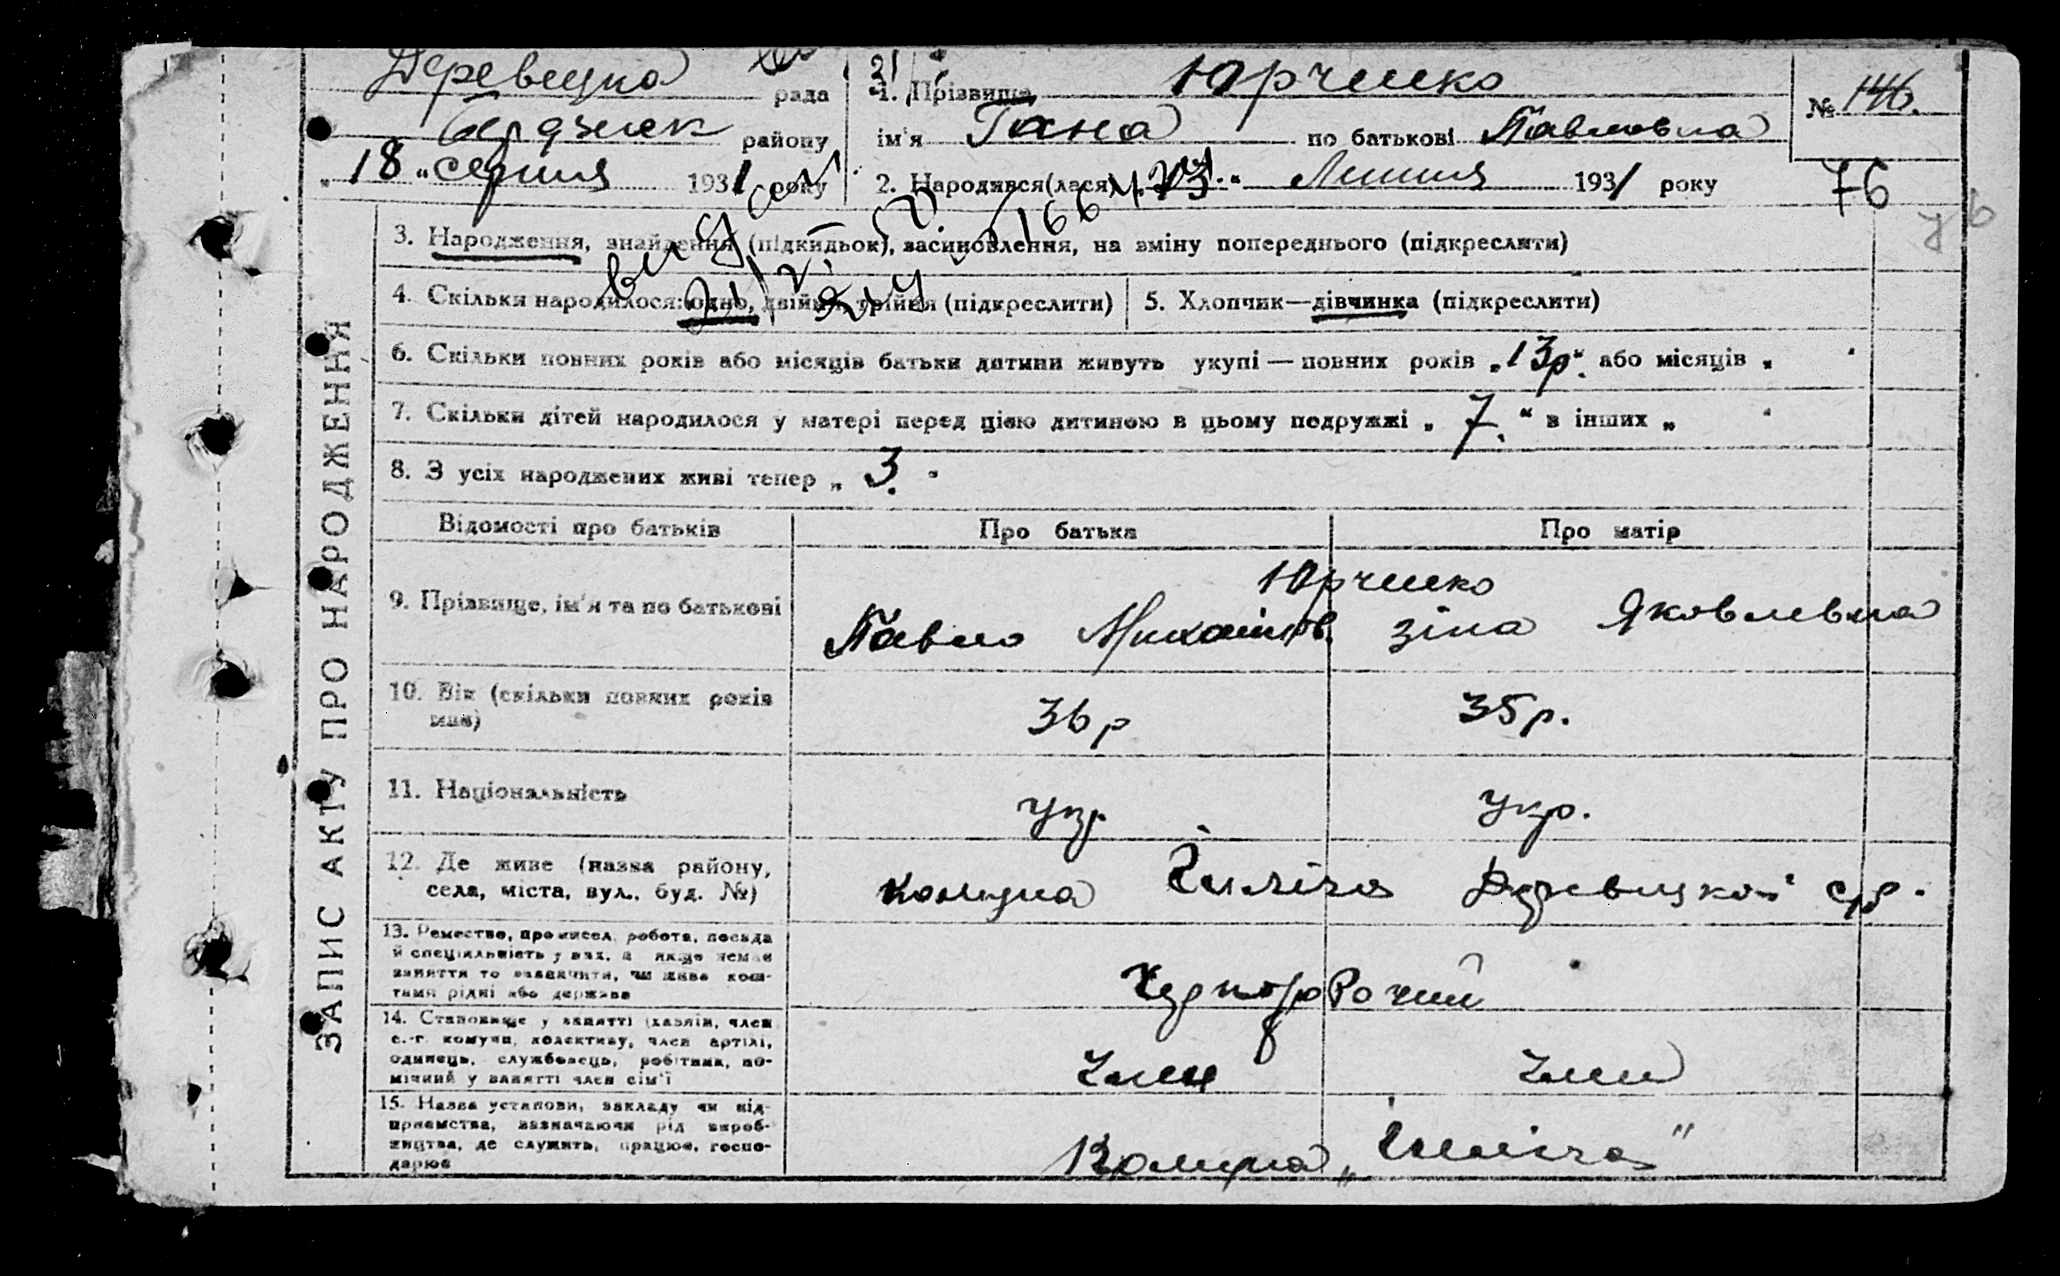 Деревецка рада
1. Прізвище Юрченко
№ 146.
Бердичек району
ім'я Гана по батькові Павловна
"18" серпня 1931 року
2. Народився(лася) Липня 1931 року
76
76
видан
ЗАПИС АКТУ ПРО НАРОДЖЕННЯ
3. Народження, знайдення (підкидьок), засиновлення, на зміну попереднього (підкреслити)
4. Скільки народилося: одно, двійня, трійня (підкреслити)
5. Хлопчик—дівчинка (підкреслити)
6. Скільки повних років або місяців батьки дитини живуть укупі — повних років „13р.“ або місяців „ “
7. Скільки дітей народилося у матері перед цією дитиною в цьому подружжі „7.“ в інших „ “
8. З усіх народжених живі тепер „3.“
Відомості про батьків
Про батька
Про матір
9. Прізвище, ім'я та по батькові
Юрченко
Павло Михайлов.
Зіна Яковлевна
10. Вік (скільки повних років
мав)
36 р
35 р.
11. Національність
укр.
укр.
12. Де живе (назва району,
села, міста, вул., буд. №)
Комуна Ілліча Деревецкої с/р.
13. Ремество, промисел, робота, посада
й спеціяльність у них, а якще немає
заняття то зазначити, чи живе кош-
тами рідні або держава
Чорноробочий
14. Становище у занятті (хазяїн, член
с.-г. комуни, колективу, член артілі,
одинець, службовець, робітник, по-
мічний у занятті член сім'ї
Член
Член
15. Назва установи, закладу чи під-
приємства, зазначаючи рід вироб-
ництва, де служить, працює, госпо-
дарює
Комуна „Ілліча"